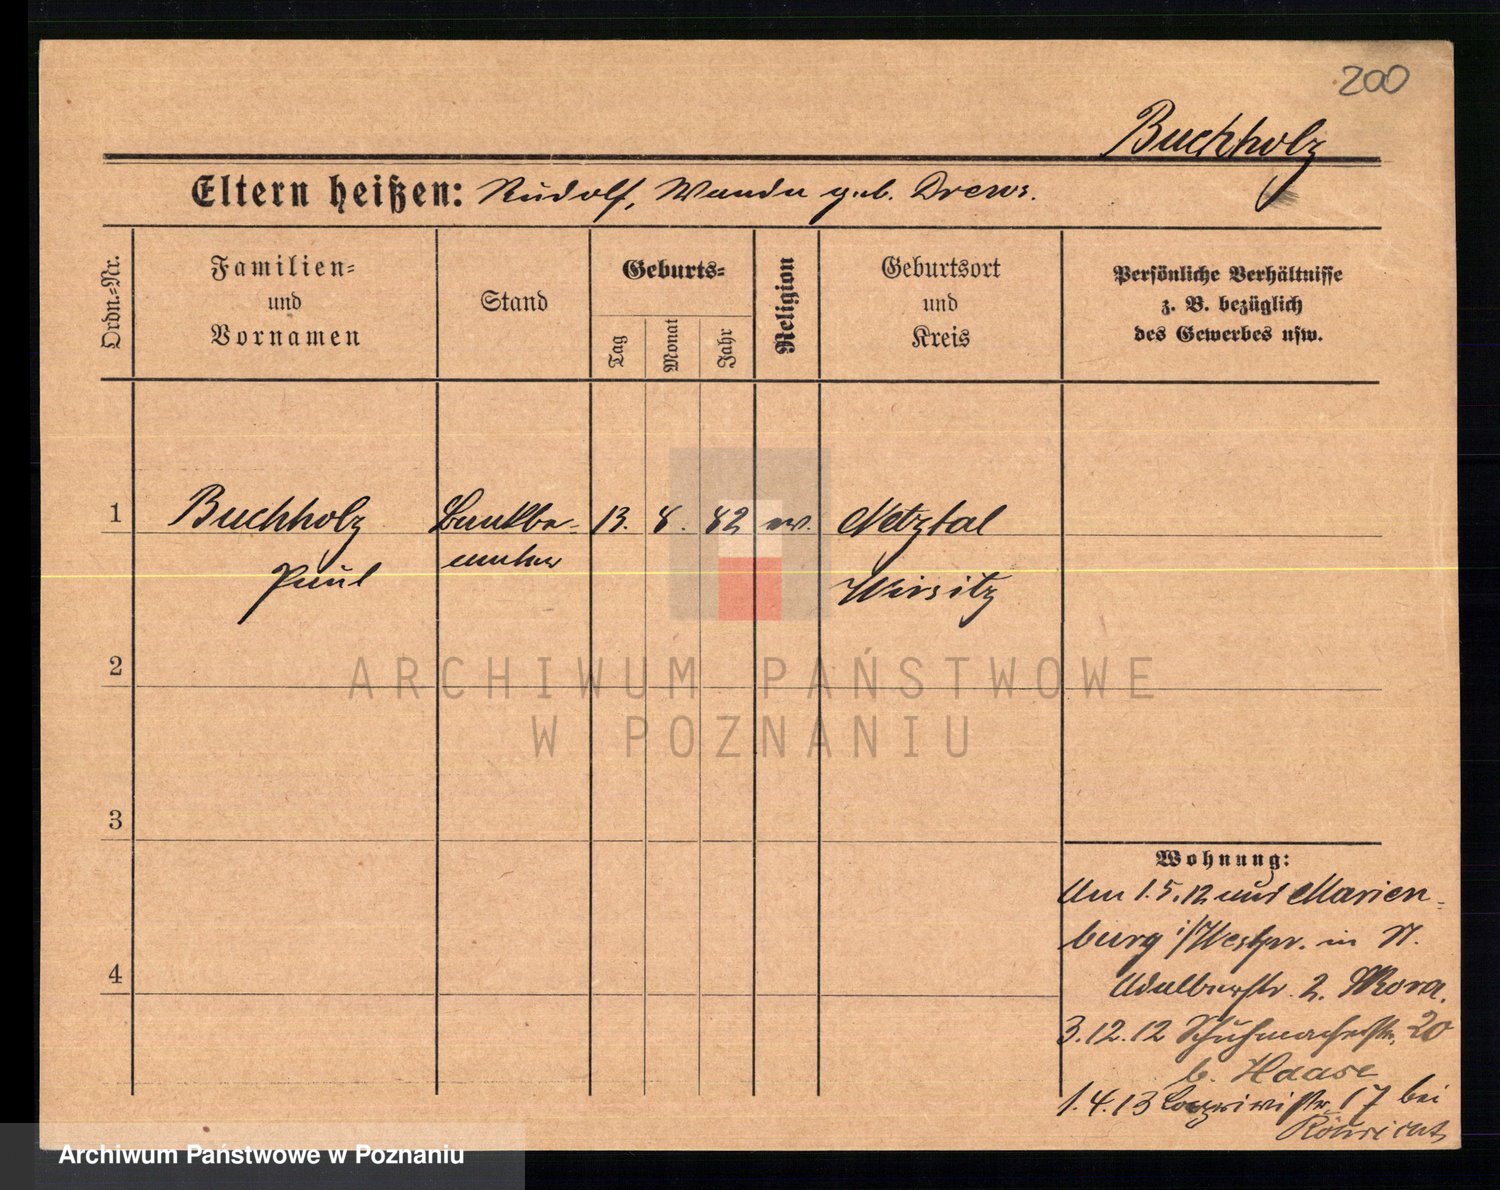 200
Buchholz
Eltern heißen: Rudolf, Wanda geb. Drews.
Ordn.-Nr.
Familien-
und
Vornamen
Stand
Geburts-
Tag
Monat
Jahr
Religion
Geburtsort
und
Kreis
Persönliche Verhältnisse
z. B. bezüglich
des Gewerbes usw.
1
Buchholz
Paul
Bankbe-
amter
13. 8. 82
ev.
Netztal
Wirsitz
2
3
4
Wohnung:
Am 1.5.12 aus Marien-
burg i/Westpr. in St.
Adalbertstr. 2.
3.12.12 Schuhmacherstr. 20
b. Haase
1.4.13 17 bei
ARCHIWUM PAŃSTWOWE
W POZNANIU
Archiwum Państwowe w Poznaniu